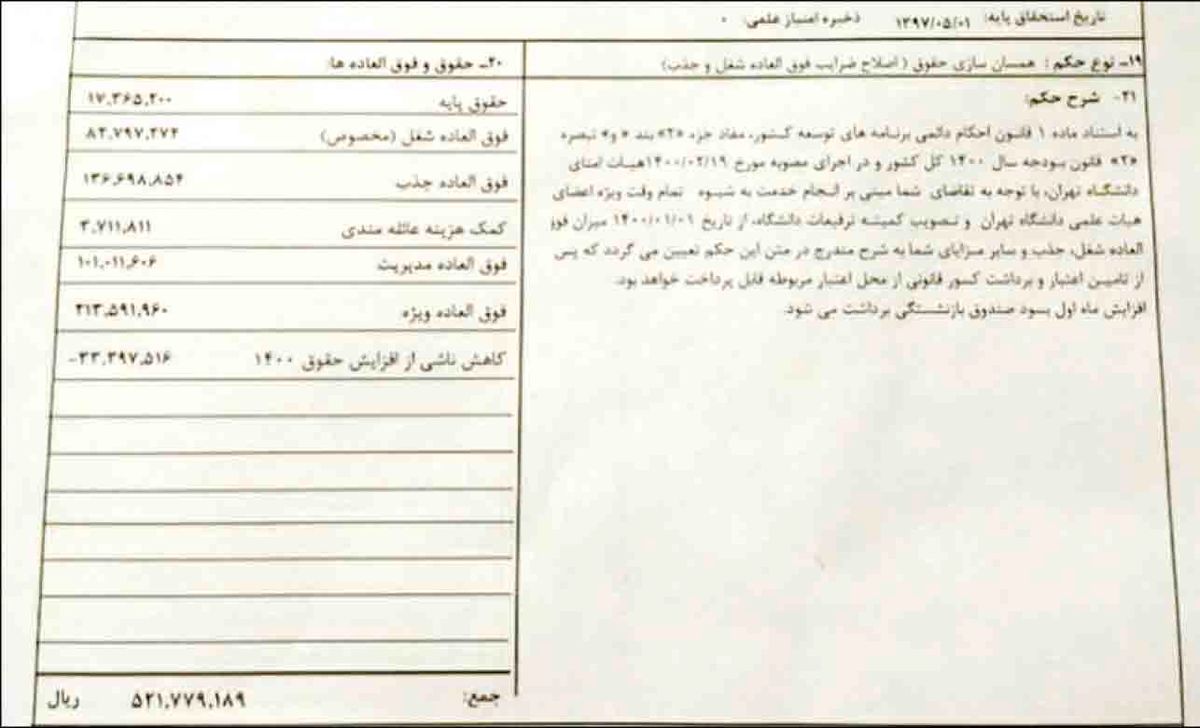 تاریخ استحقاق پایه: ۱۳۹۷/۰۵/۰۱ ذخیره امتیاز علمی: ۰
۱۹- نوع حکم : همسان سازی حقوق ( اصلاح ضرایب فوق العاده شغل و جذب)
۲۱- شرح حکم:
به استناد ماده ۱ قانون احکام دائمی برنامه های توسعه کشور، مفاد جزء «۲» بند « و» تبصره
«۲» قانون بودجه سال ۱۴۰۰ کل کشور و در اجرای مصوبه مورخ ۱۴۰۰/۰۲/۱۹هیات امنای
دانشگاه تهران، با توجه به تقاضای شما مبنی بر انجام خدمت به شیوه تمام وقت ویژه اعضای
هیات علمی دانشگاه تهران و تصویب کمیته ترفیعات دانشگاه، از تاریخ ۱۴۰۰/۰۱/۰۱ میزان فوق
العاده شغل، جذب و سایر مزایای شما به شرح مندرج در متن این حکم تعیین می گردد که پس
از تامین اعتبار و برداشت کسور قانونی از محل اعتبار مربوطه قابل پرداخت خواهد بود.
افزایش ماه اول بسود صندوق بازنشستگی برداشت می شود.
۲۰- حقوق و فوق العاده ها:
حقوق پایه ۱۷,۳۶۵,۲۰۰
فوق العاده شغل (مخصوص) ۸۲,۷۹۷,۲۷۴
فوق العاده جذب ۱۳۶,۶۹۸,۸۵۴
کمک هزینه عائله مندی ۳,۷۱۱,۸۱۱
فوق العاده مدیریت ۱۰۱,۰۱۱,۶۰۶
فوق العاده ویژه ۲۱۳,۵۹۱,۹۶۰
کاهش ناشی از افزایش حقوق ۱۴۰۰ ۳۳,۳۹۷,۵۱۶-
جمع: ۵۲۱,۷۷۹,۱۸۹ ریال